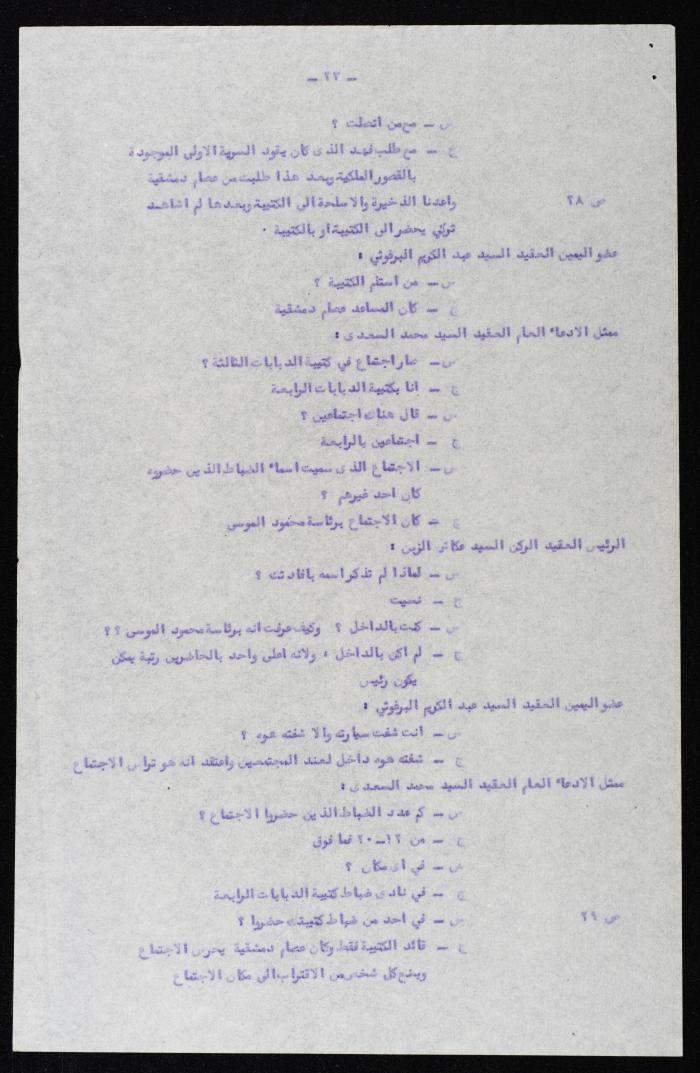 - ٢٢ -
س - مع من اتصلت ؟
ج - مع طلب فهد الذى كان يقود السرية الاولى الموجودة
بالقصور الملكية وبعد هذا طلبت من عصام دمشقية
ص ٢٨ واعدنا الذخيرة والاسلحة الى الكتيبة وبعدها لم اشاهد
تركي يحضر الى الكتيبة او بالكتيبة .
عضو اليمين العقيد السيد عبد الكريم البرغوثي :
س - من استلم الكتيبة ؟
ج - كان المساعد عصام دمشقية
ممثل الادعاء العام العقيد السيد محمد السعدى :
س - صار اجتماع في كتيبة الدبابات الثالثة ؟
ج - انا بكتيبة الدبابات الرابعة
س - قال هناك اجتماعين ؟
ج - اجتماعين بالرابعة
س - الاجتماع الذى سميت اسماء الضباط الذين حضروه
كان احد غيرهم ؟
ج - كان الاجتماع برئاسة محمود الموسى
الرئيس العقيد الركن السيد عكاش الزبن :
س - لماذا لم تذكر اسمه بافادتك ؟
ج - نسيت
س - كنت بالداخل ؟ وكيف عرفت انه برئاسة محمود الموسى ؟؟
ج - لم اكن بالداخل ، ولانه اعلى واحد بالحاضرين رتبة يمكن
يكون رئيس
عضو اليمين العقيد السيد عبد الكريم البرغوثي :
س - انت شفت سيارته والا شفته هوه ؟
ج - شفته هوه داخل لعند المجتمعين واعتقد انه هو تراس الاجتماع
ممثل الادعاء العام العقيد السيد محمد السعدى :
س - كم عدد الضباط الذين حضروا الاجتماع ؟
ج - من ١٢-٢٠ فما فوق
س - في اى مكان ؟
ج - في نادى ضباط كتيبة الدبابات الرابعة
ص ٢٩ س - في احد من ضباط كتيبتك حضروا ؟
ج - قائد الكتيبة فقط وكان عصام دمشقية يحرس الاجتماع
ويمنع كل شخص من الاقتراب الى مكان الاجتماع